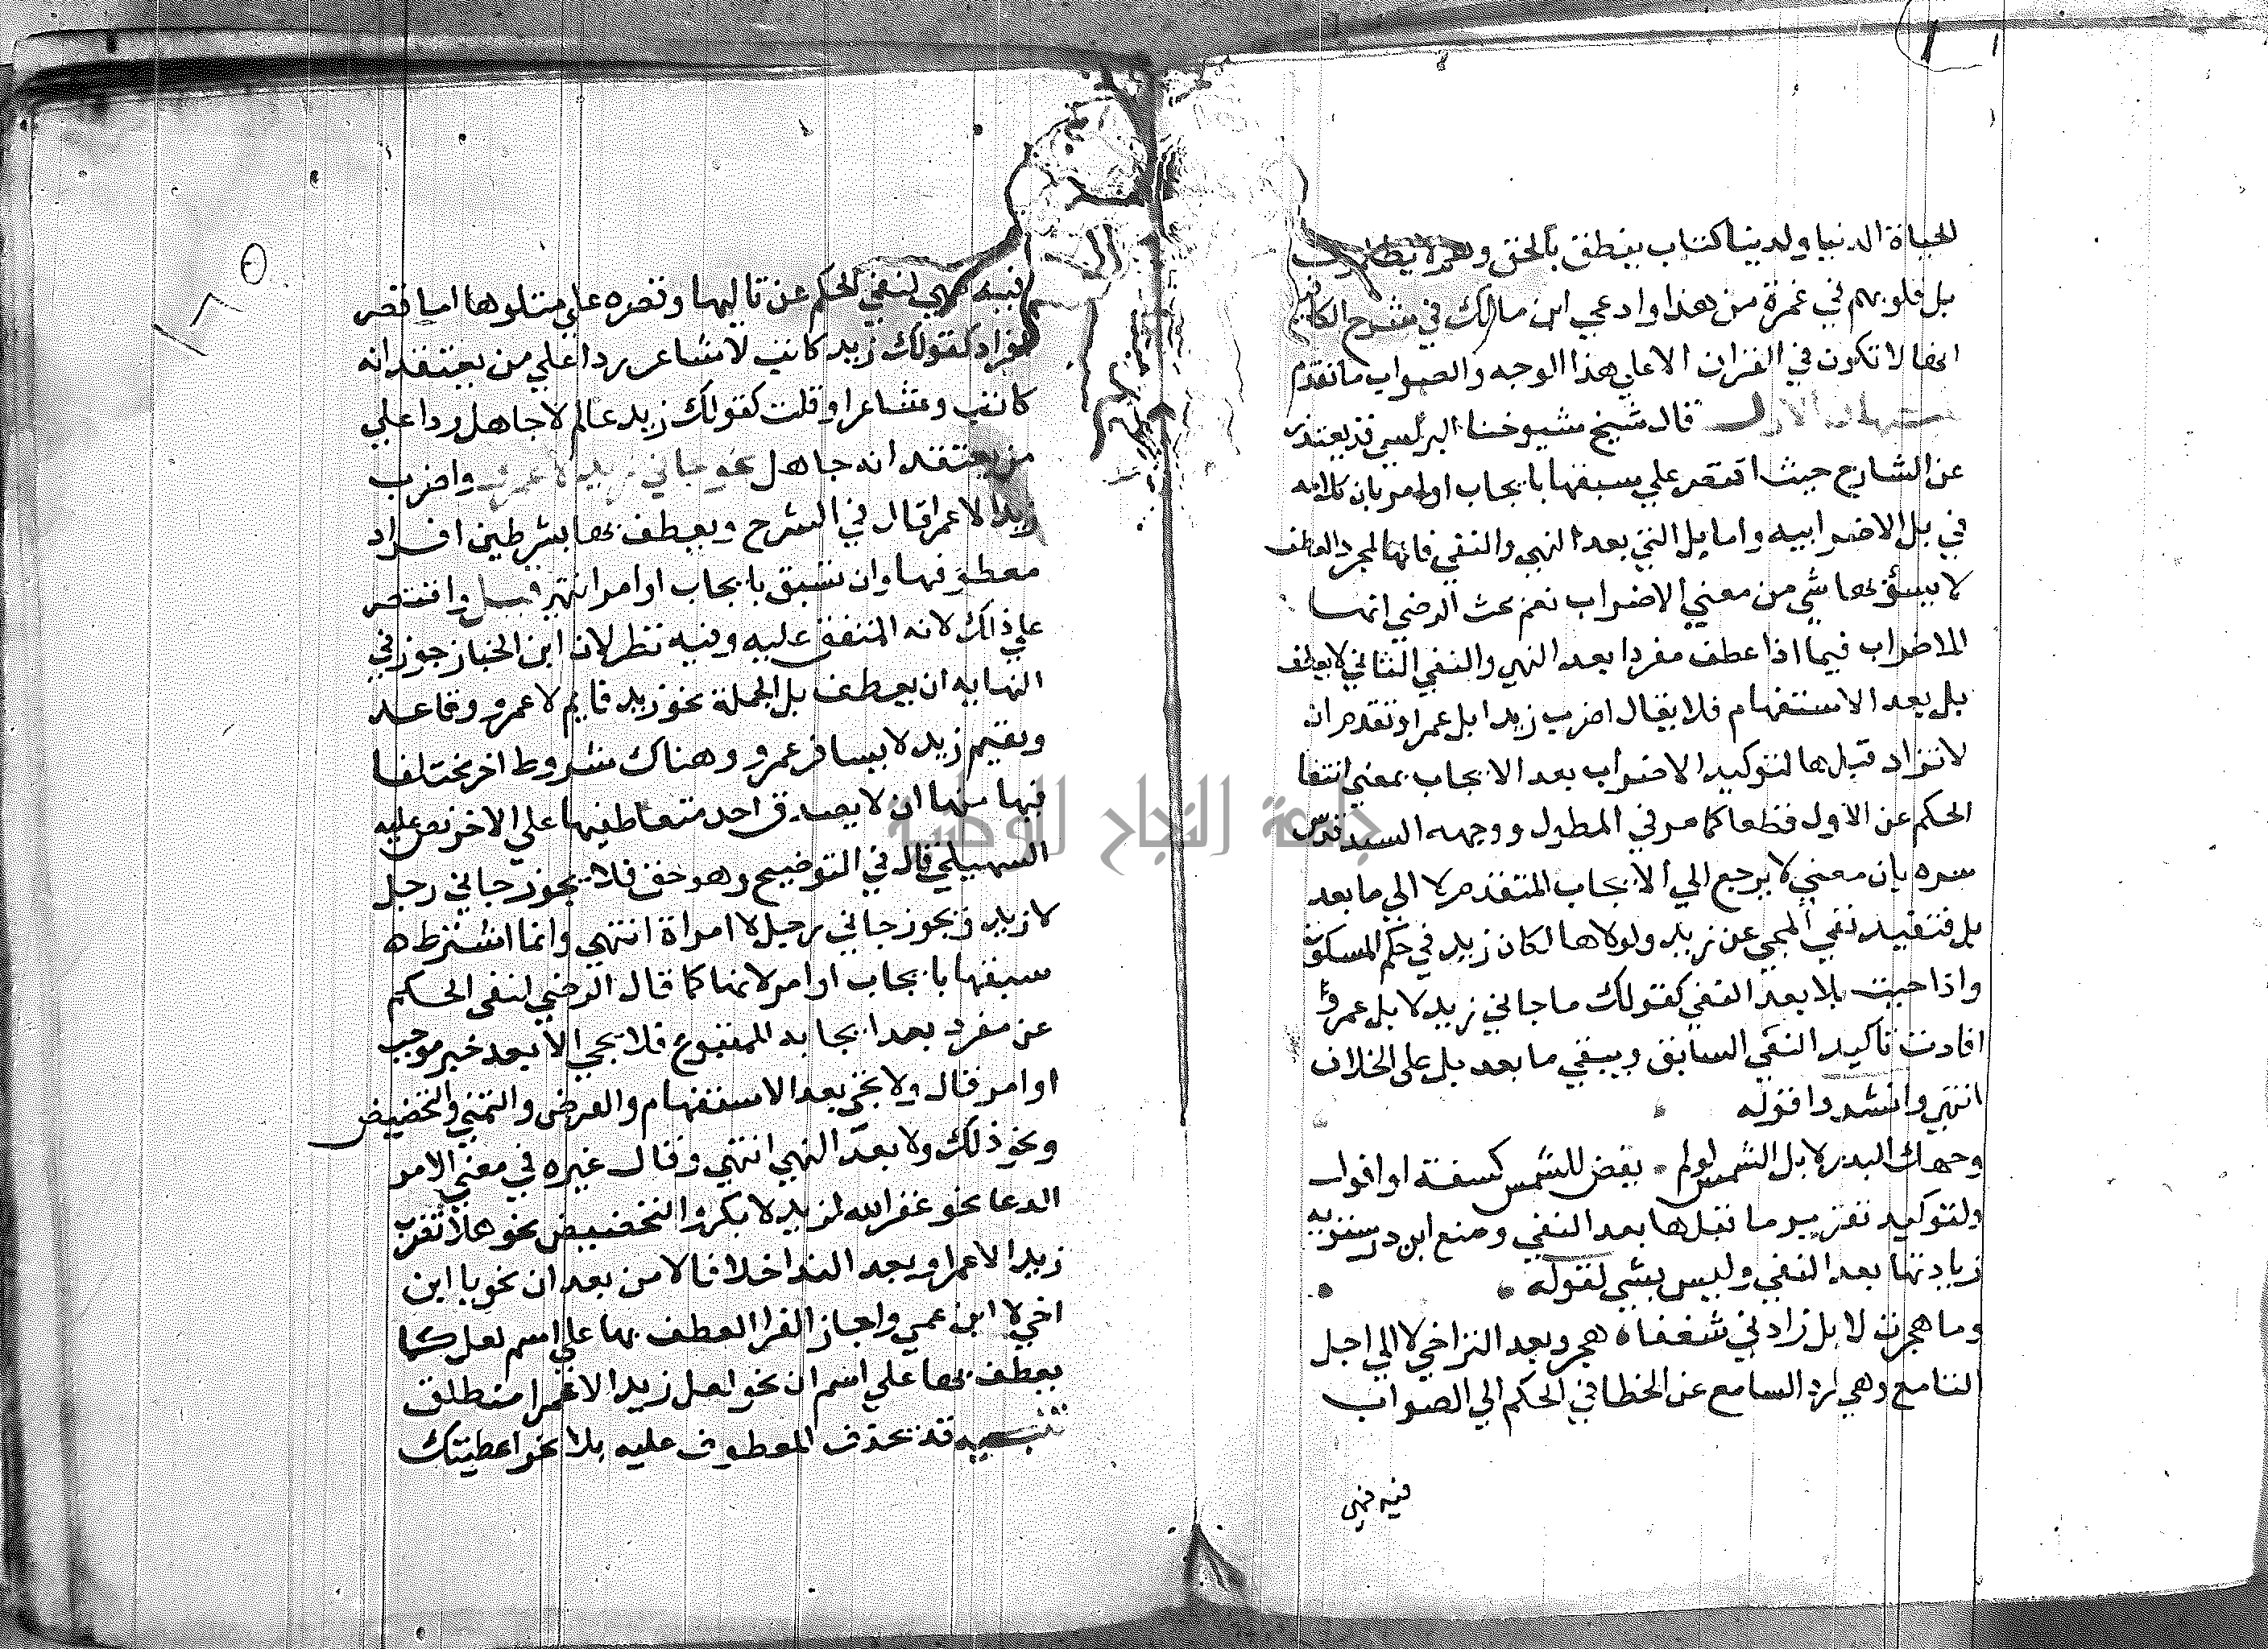 ١ ١
الحياة الدنيا ولدينا كتاب ينطق بالحق وهم لا يظلمون
بل قلوبهم في غمرة من هذا وادعي ابن مالك في شرح الكافية
انها لا تكون في القران الا علي هذا الوجه والصواب ما تقدم
الاول قال شيخ مشيوخنا البرلسي قد يعتذر
عن الشارح حيث اقتصر علي سبقها بايجاب او امر بان كلامه
في بل الاضرابيه واما بل التي بعد النهي والنفي فانها لمجرد العطف
لا يبقي بها شي من معني الاضراب نعم بحث الرضي انها
للاضراب فيما اذا عطف مفردا بعد النهي والنفي الثاني لا يعطف
بل بعد الاستفهام فلا يقال اضرب زيدا بل عمرا وتقدم ان
لا تزاد قبلها لتوكيد الاضراب بعد الايجاب بمعني انتفا
الحكم عن الاول قطعا كما مر في المطول ووجهه السيد قدس
سره بان معني لا يرجع الي الايجاب المتقدم لا الي ما بعد
بل فتفيد نفي المجي عن زيد ولولاها لكان زيد في حكم المسكوت
واذا جيت بلا بعد النفي كقولك ما جاني زيد لا بل عمرو
افادت تاكيد النفي السابق ويبقي ما بعد بل علي الخلاف
انتهي وانشدوا قوله
وجهك البدر لا بل الشمس لو لم يقض للشمس كسفة او افول
ولتوكيد تقرير ما قبلها بعد النفي ومنع ابن درستويه
زيادتها بعد النفي وليس بشي لقوله
وما هجرت لا بل زادني شغفا هجر وبعد التراخي لا الي اجل
التامع وهي لرد السامع عن الخطا في الحكم الي الصواب
فيه فهي
فيه فهي لنفي الحكم عن تاليها وقصره علي متلوها اما قصر
افراد كقولك زيد كاتب لا شاعر ردا علي من يعتقد انه
كاتب وشاعر او قلت كقولك زيد عالم لا جاهل ردا علي
من يعتقد انه جاهل نحو جاني زيد لا عمرو واضرب
زيدا لا عمرا قال في الشرح ويعطف بها بشرطين افراد
معطوفها وان تسبق بايجاب او امر انتهي قيل واقتصر
علي ذلك لانه المتفق عليه وفيه نظر لان ابن الخباز جوز في
النهايه ان يعطف بل الجملة نحو زيد قايم لا عمرو وقاعد
ويقيم زيد لا يسافر عمرو وهناك شروط اخر مختلفا
فيها منها ان لا يصدق احد متعاطفيها علي الاخر نص عليه
السهيلي قال في التوضيح وهو حق فلا يجوز جاني رجل
لا زيد ويجوز جاني رجل لا امراة انتهي وانما اشترط ه
سبقها بايجاب او امر لانها كما قال الرضي لنفي الحكم
عن مفرد بعد ايجابه للمتبوع فلا يجي الا بعد خبر موجب
او امر قال ولا تجي بعد الاستفهام والعرض والتمني والتحضيض
ونحو ذلك ولا بعد النهي انتهي وقال غيره في معني الامر
الدعا نحو غفر الله لزيد لا بكر والتحضيض نحو هلا تضرب
زيدا لا عمرا وبعد الندا خلافا لابن سعدان نحو يا ابن
اخي لا ابن عمي واجاز الفرا العطف بها علي اسم لعل كما
يعطف بها علي اسم ان نحو لعل زيدا لا عمرا منطلق
تنبيه قد يحذف المعطوف عليه بلا نحو اعطيتك
جامعة النجاح الوطنية